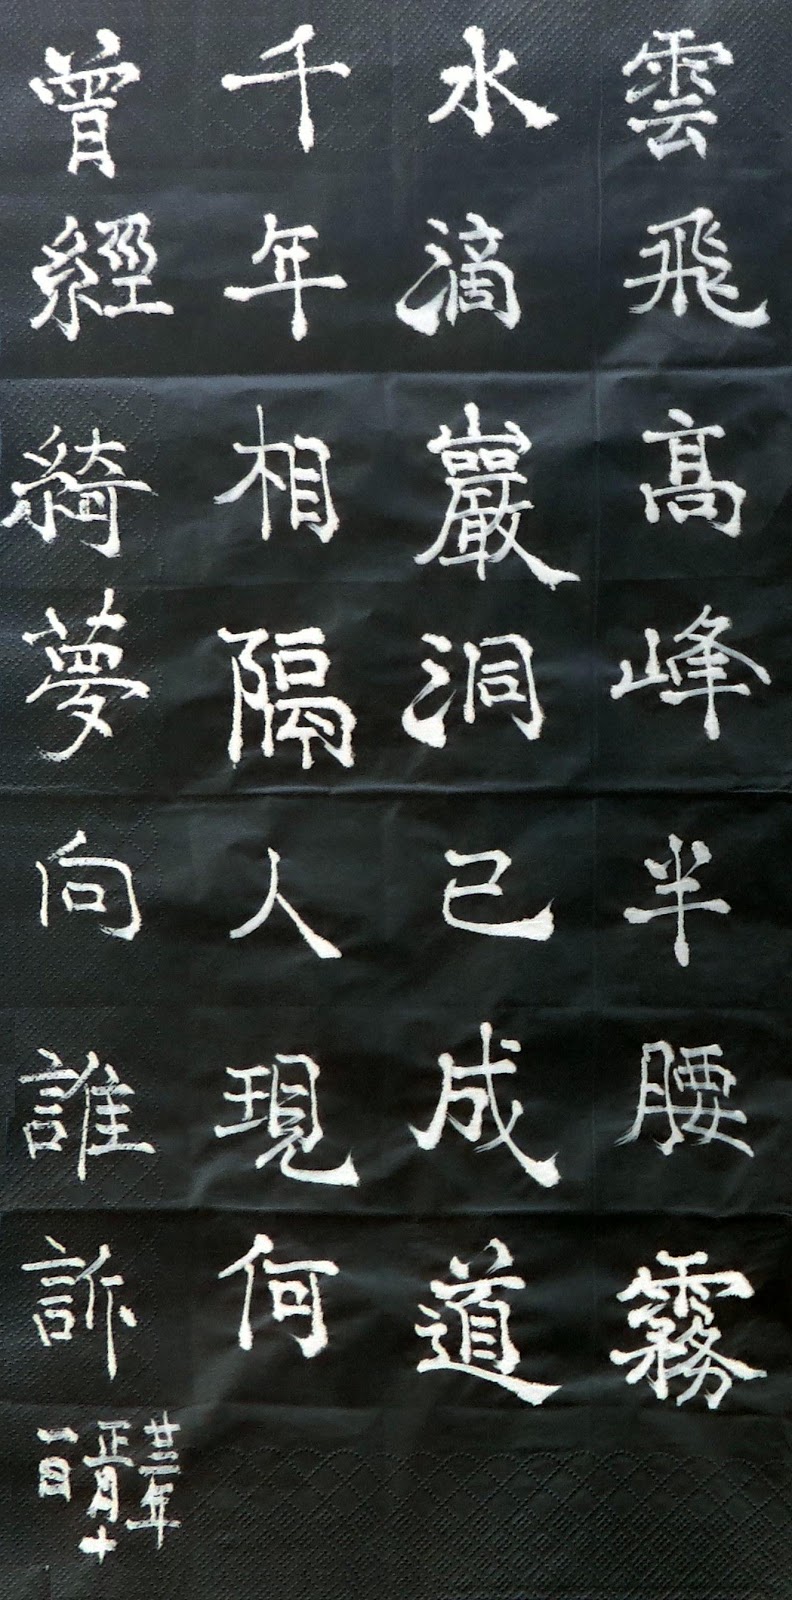 雲飛高峰半腰霧
水滴巖洞已成道
千年相隔人現何
曾經綺夢向誰訴
廿三年
正月十
一日